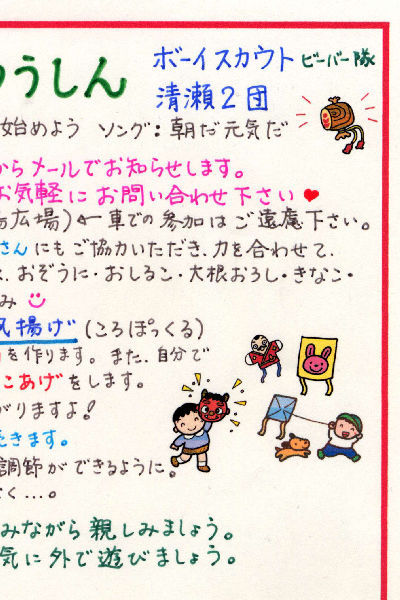 つうしん
ボーイスカウト ビーバー隊
清瀬2団
始めよう ソング:朝だ元気だ
からメールでお知らせします。
お気軽に お問い合わせ下さい❤
広場)← 車での参加はご遠慮下さい。
さんにもご協力いただき、力を合わせて、
、おぞうに・おしるこ・大根おろし・きなこ・
み
揚げ (ころぽっくる)
を作ります。また、自分で
こあげをします。
がりますよ!
きます。
調節ができるように。
く...。
みながら親しみましょう。
気に外で遊びましょう。